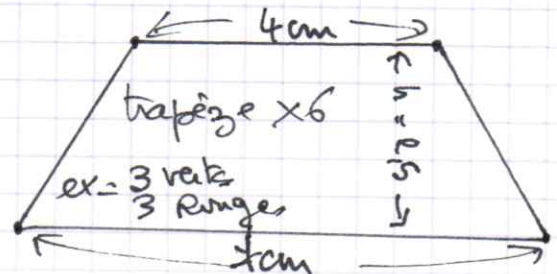 4cm
trapèze x6
ex = 3 verts
3 Rouges
7cm